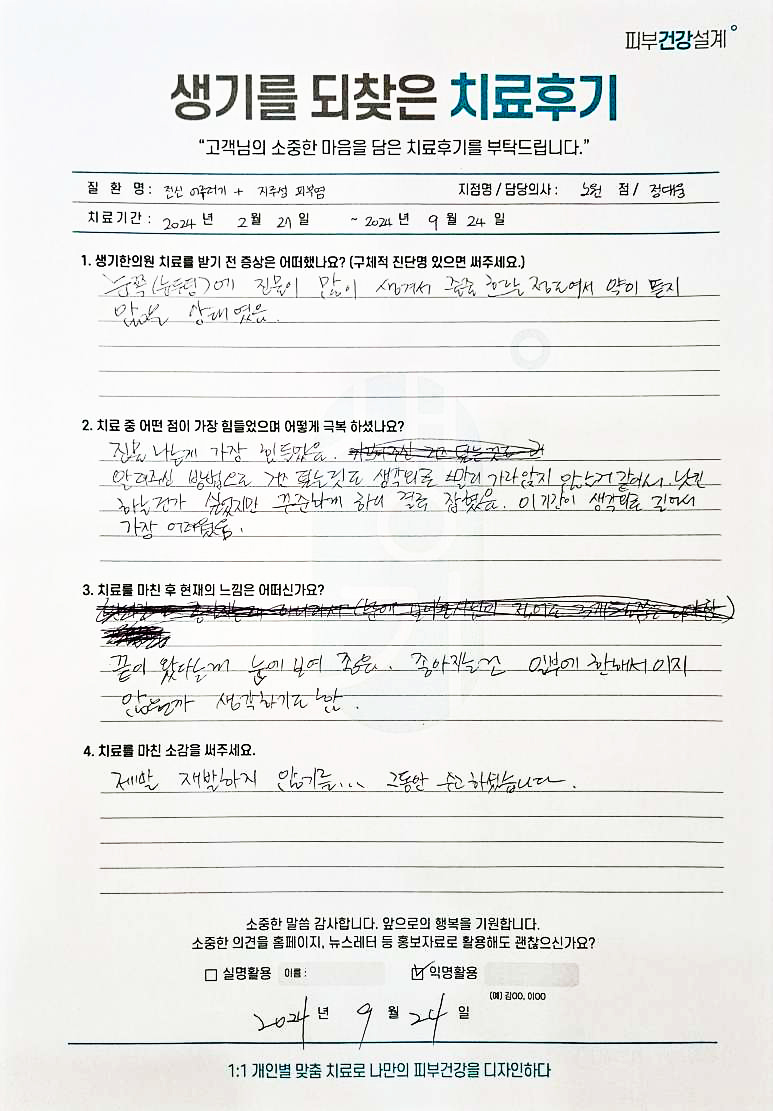 피부건강설계
생기를 되찾은 치료후기
“고객님의 소중한 마음을 담은 치료후기를 부탁드립니다.”
질 환 명 : 전신 여드름 + 지루성 피부염 지점명 / 담당의사 : 노원 점 / 정대웅
치료기간 : 2024 년 2 월 21 일 ~ 2024 년 9 월 24 일
1. 생기한의원 치료를 받기 전 증상은 어떠했나요? (구체적 진단명 있으면 써주세요.)
진물이 많이 생겨서 줄줄 흐르는 정도여서 약이 듣지
않은 상태였음.
2. 치료 중 어떤 점이 가장 힘들었으며 어떻게 극복 하셨나요?
진물 나는게 가장 힘들었음.
알려주신 방법으로 생각외로 빨리 가라앉지 않는거 같아서
하는건가 싶었지만 꾸준하게 하니 결국 잡혔음. 이 기간이 생각외로 길어서
가장 어려웠음.
3. 치료를 마친 후 현재의 느낌은 어떠신가요?
끝이 왔다는게 눈에 보여 좋음. 좋아지는건 한해서이지
않을까 생각하기도 함.
4. 치료를 마친 소감을 써주세요.
제발 재발하지 않기를... 그동안 수고하셨습니다.
소중한 말씀 감사합니다. 앞으로의 행복을 기원합니다.
소중한 의견을 홈페이지, 뉴스레터 등 홍보자료로 활용해도 괜찮으신가요?
실명활용 이름 : 익명활용
(예) 김OO, 이OO
2024 년 9 월 24 일
1:1 개인별 맞춤 치료로 나만의 피부건강을 디자인하다